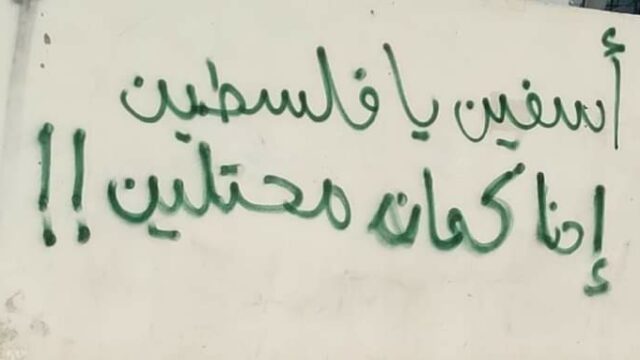 أسفين يا فلسطين
إحنا كمان محتلين !!